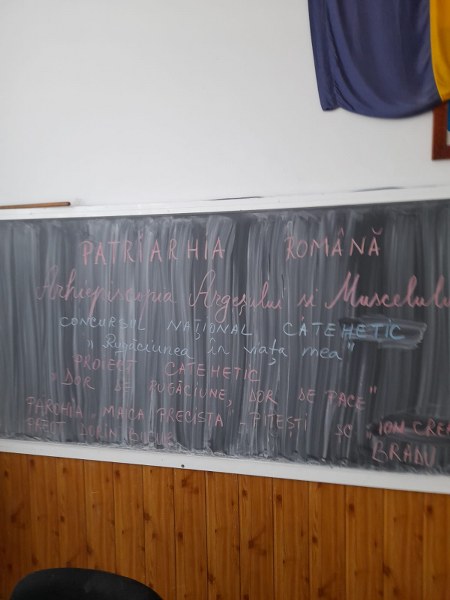 PATRIARHIA ROMÂNĂ
Arhiepiscopia Argeșului si Muscelului
CONCURSUL NAȚIONAL CATEHETIC
"Rugăciunea în viața mea"
PROIECT CATEHETIC
"DOR DE RUGĂCIUNE, DOR DE PACE"
PAROHIA "MAICA PRECISTA" - PITEȘTI ȘC "ION CREA
BRADU